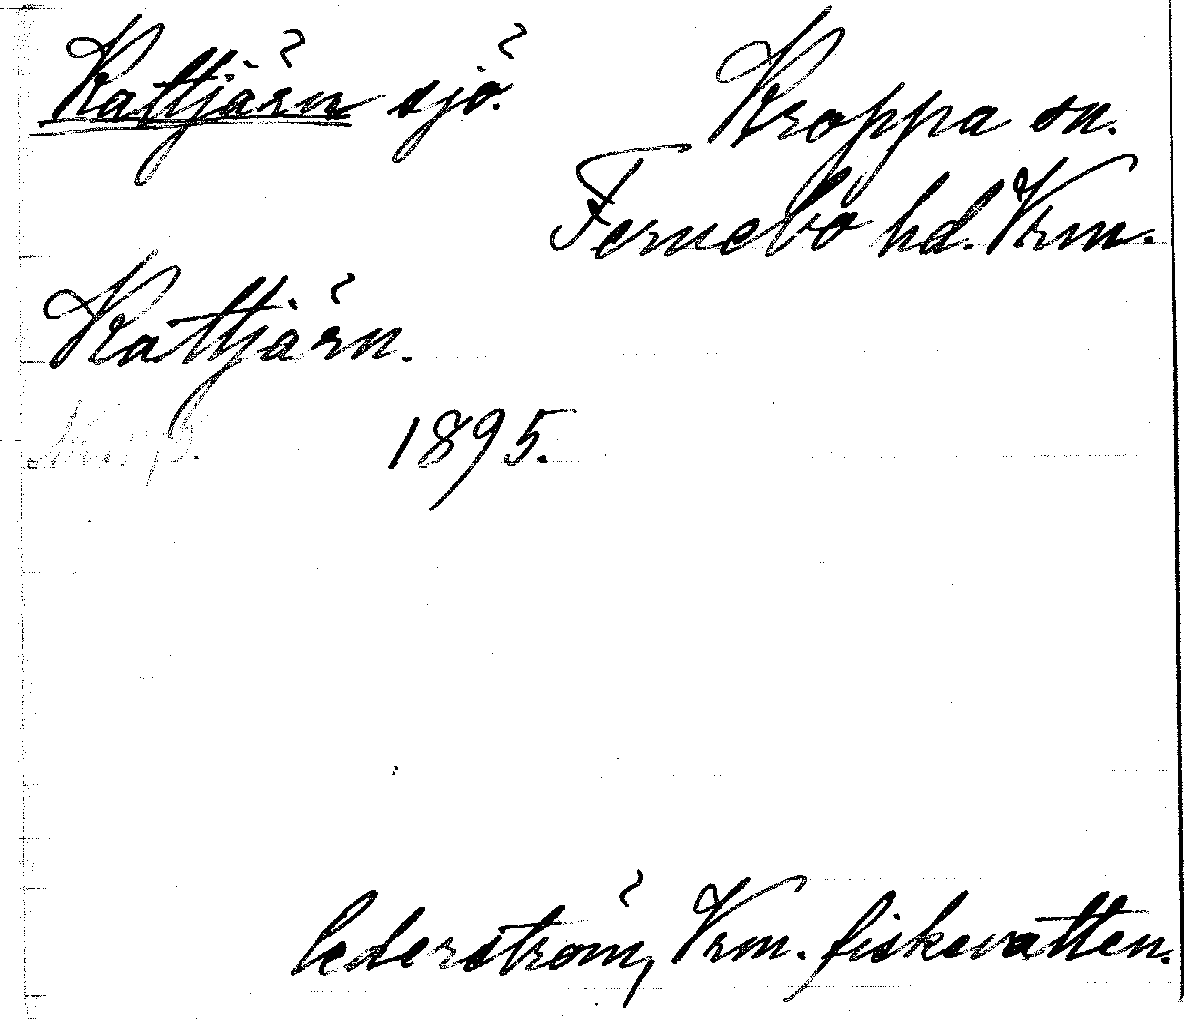 Kattjärn sjö.
Kroppa sn.
Fernebo hd. Vrm.
Kattjärn.
1895.
Cederström, Vrm. fiskevatten.